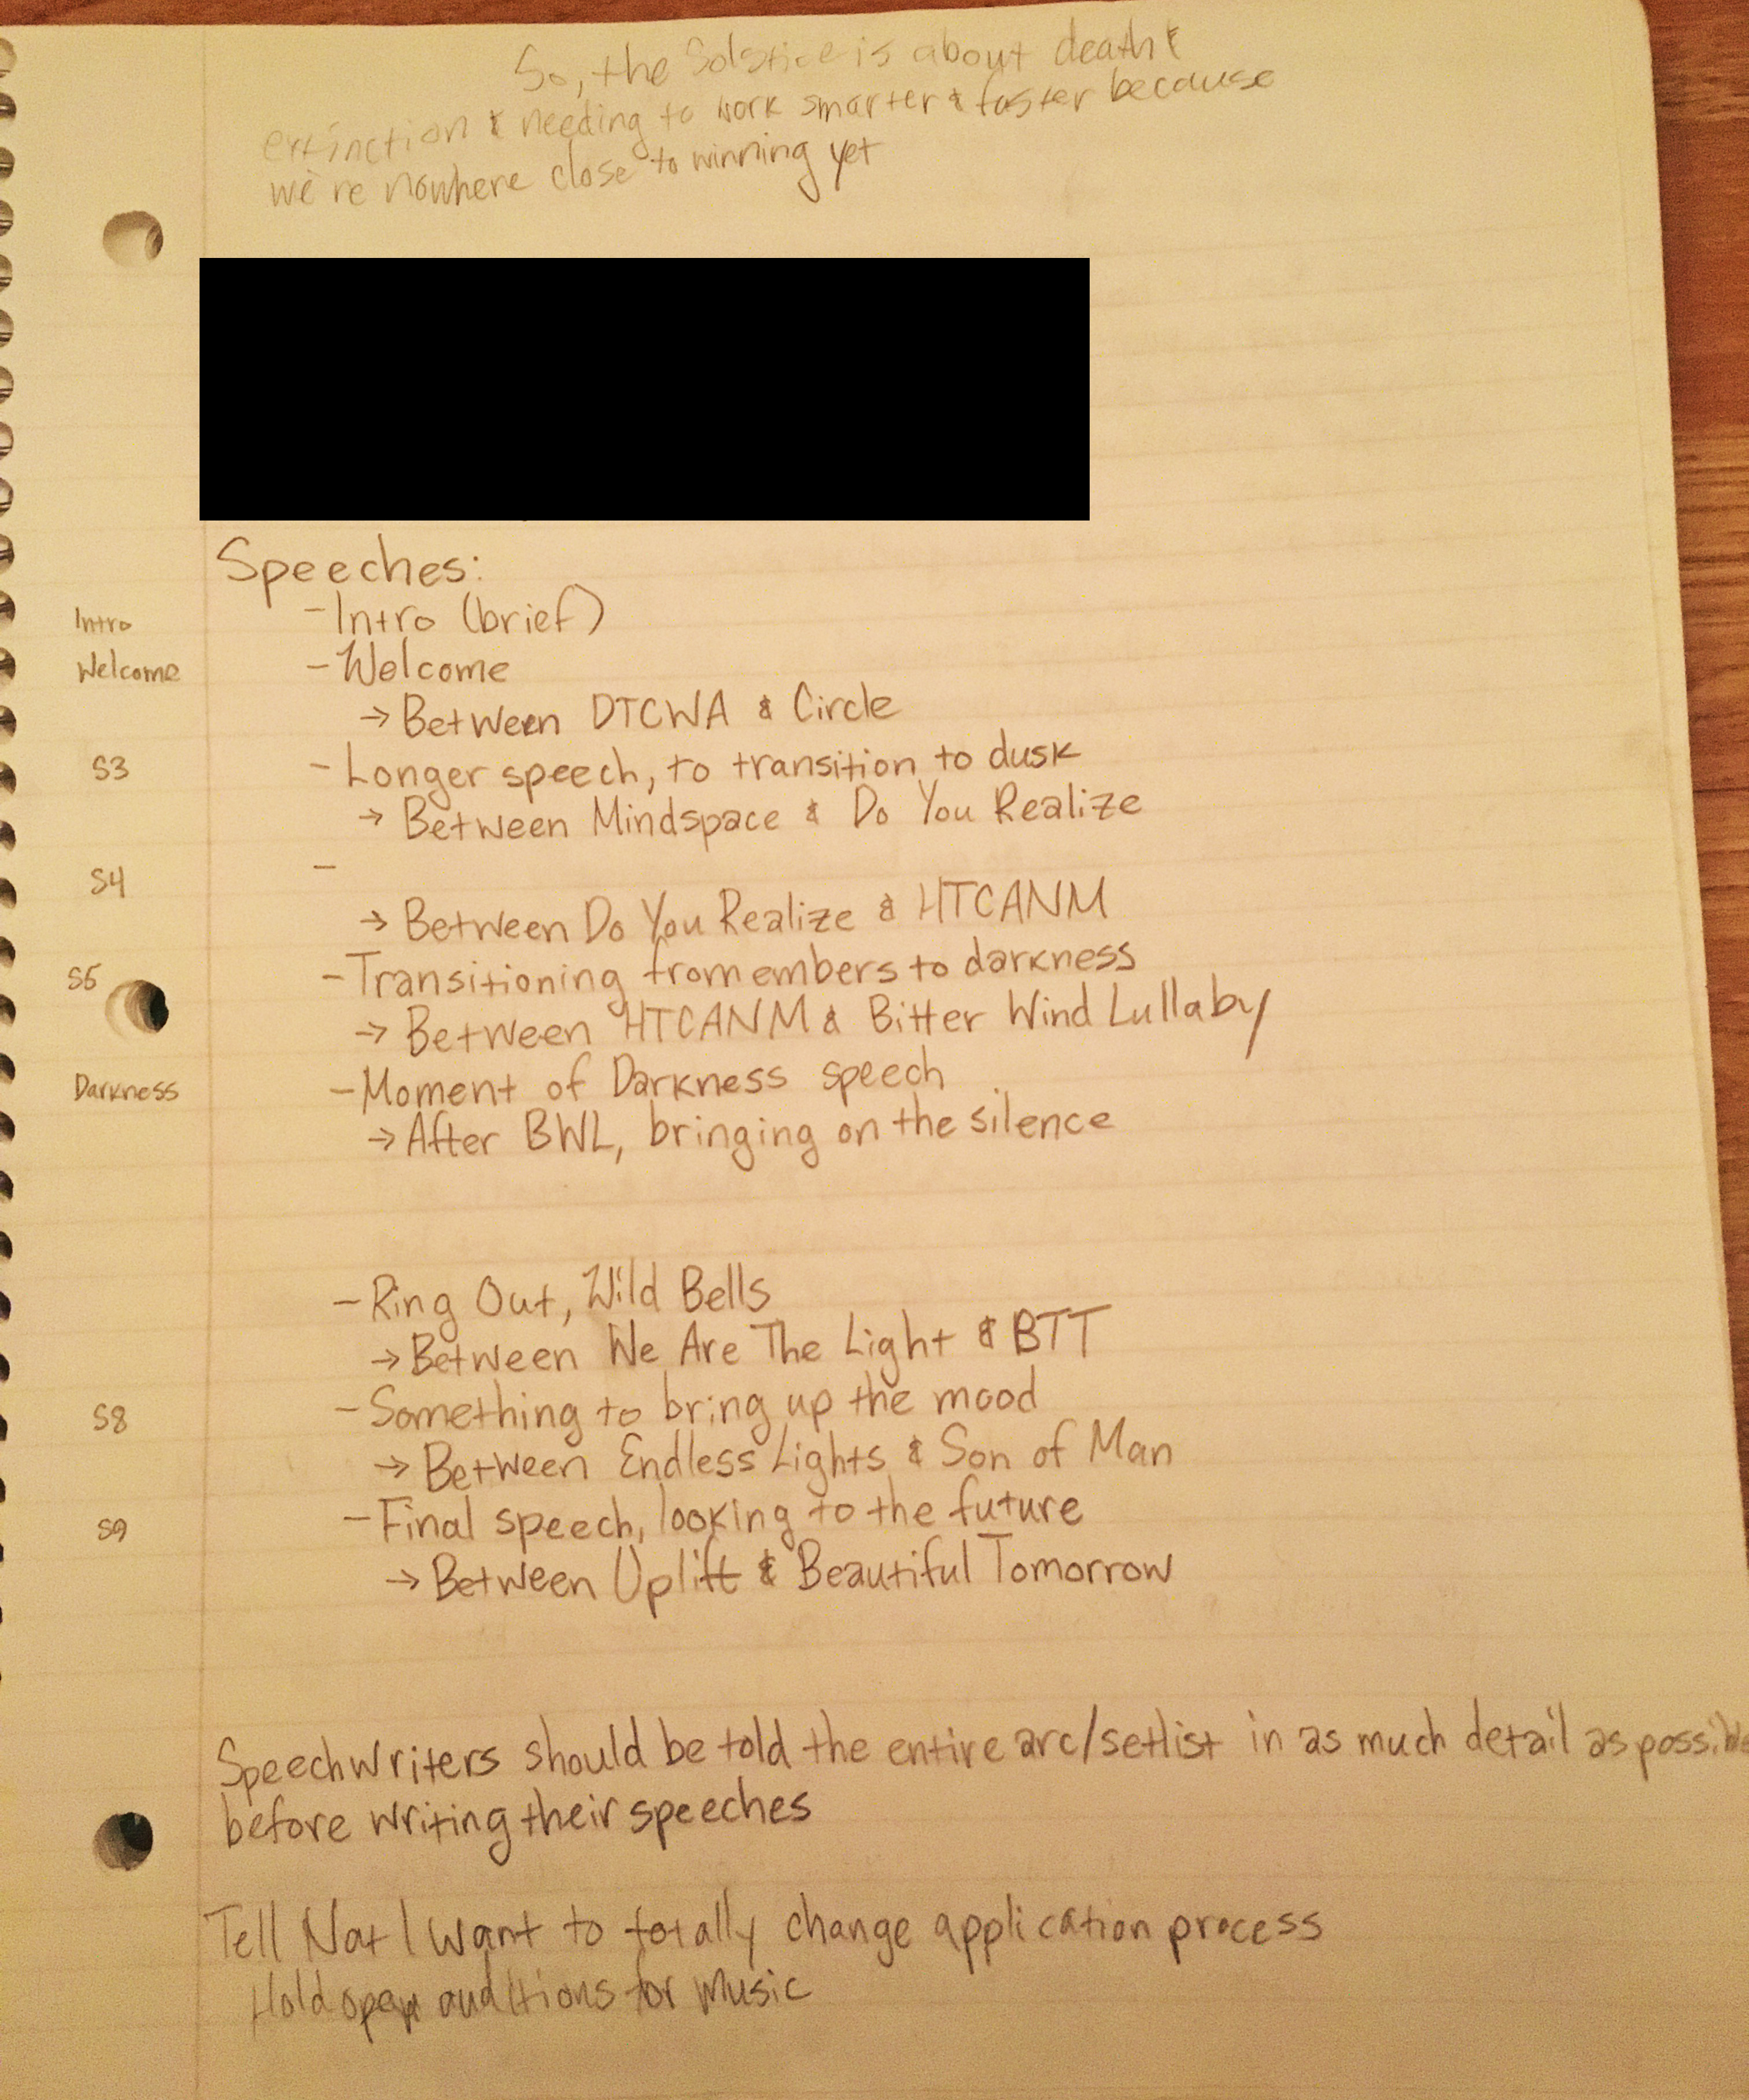 So, the Solstice is about death &
extinction & needing to work smarter & faster because
we're nowhere close to winning yet
Speeches:
Intro - Intro (brief)
Welcome - Welcome
→ Between DTCWA & Circle
S3 - Longer speech, to transition to dusk
→ Between Mindspace & Do You Realize
S4 -
→ Between Do You Realize & HTCANM
S5 - Transitioning from embers to darkness
→ Between HTCANM & Bitter Wind Lullaby
Darkness - Moment of Darkness speech
→ After BWL, bringing on the silence
- Ring Out, Wild Bells
→ Between We Are The Light & BTT
S8 - Something to bring up the mood
→ Between Endless Lights & Son of Man
S9 - Final speech, looking to the future
→ Between Uplift & Beautiful Tomorrow
Speechwriters should be told the entire arc/setlist in as much detail as possible
before writing their speeches
Tell Nat I want to totally change application process
Hold open auditions for music